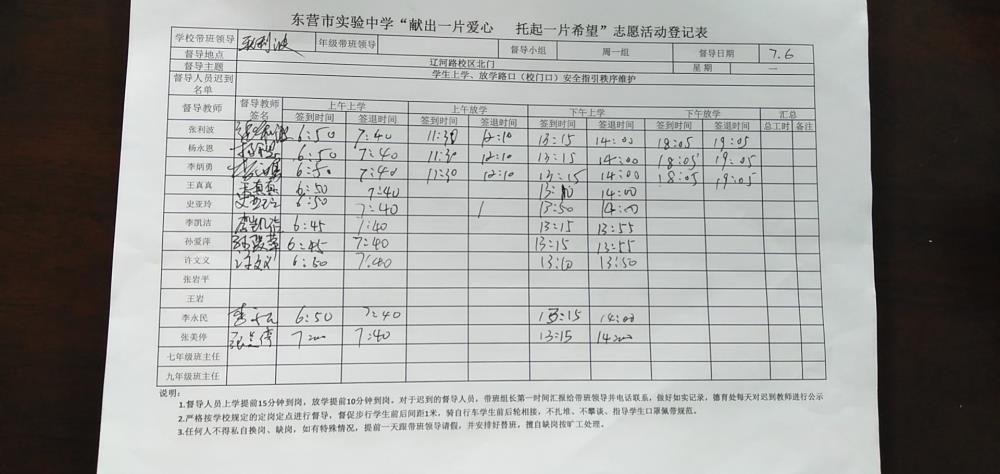 东营市实验中学“献出一片爱心 托起一片希望”志愿活动登记表
学校带班领导 年级带班领导 督导小组 周一组 督导日期 7.6
督导地点 辽河路校区北门 星期 一
督导主题 学生上学、放学路口（校门口）安全指引秩序维护
督导人员迟到名单
督导教师 督导教师签名 上午上学 上午放学 下午上学 下午放学 汇总
签到时间 签退时间 签到时间 签退时间 签到时间 签退时间 签到时间 签退时间 总工时 备注
张利波 6:50 7:40 11:30 12:10 13:15 14:00 18:05 19:05
杨永恩 6:50 7:40 11:30 12:10 13:15 14:00 18:05 19:05
李炳勇 6:50 7:40 11:30 12:10 13:15 14:00 18:05 19:05
王真真 王真真 6:50 7:40 14:00
史亚玲 6:50 7:40 13:50 14:00
李凯洁 李凯洁 6:45 7:40 13:15 13:55
孙爱萍 孙爱萍 6:45 7:40 13:15 13:55
许文义 许文义 6:50 7:40 13:10 13:50
张岩平
王岩
李永民 李永民 6:50 7:40 13:15 14:00
张美停 张美停 7:00 7:40 13:15 14:00
七年级班主任
九年级班主任
说明：
1.督导人员上学提前15分钟到岗，放学提前10分钟到岗。对于迟到的督导人员，带班组长第一时间汇报给带班领导并电话联系，做好如实记录，德育处每天对迟到教师进行公示
2.严格按学校规定的定岗定点进行督导，督促步行学生前后间距1米，骑自行车学生前后轮相接，不扎堆、不攀谈、指导学生口罩佩带规范。
3.任何人不得私自换岗、缺岗，如有特殊情况，提前一天跟带班领导请假，并安排好替班，擅自缺岗按旷工处理。